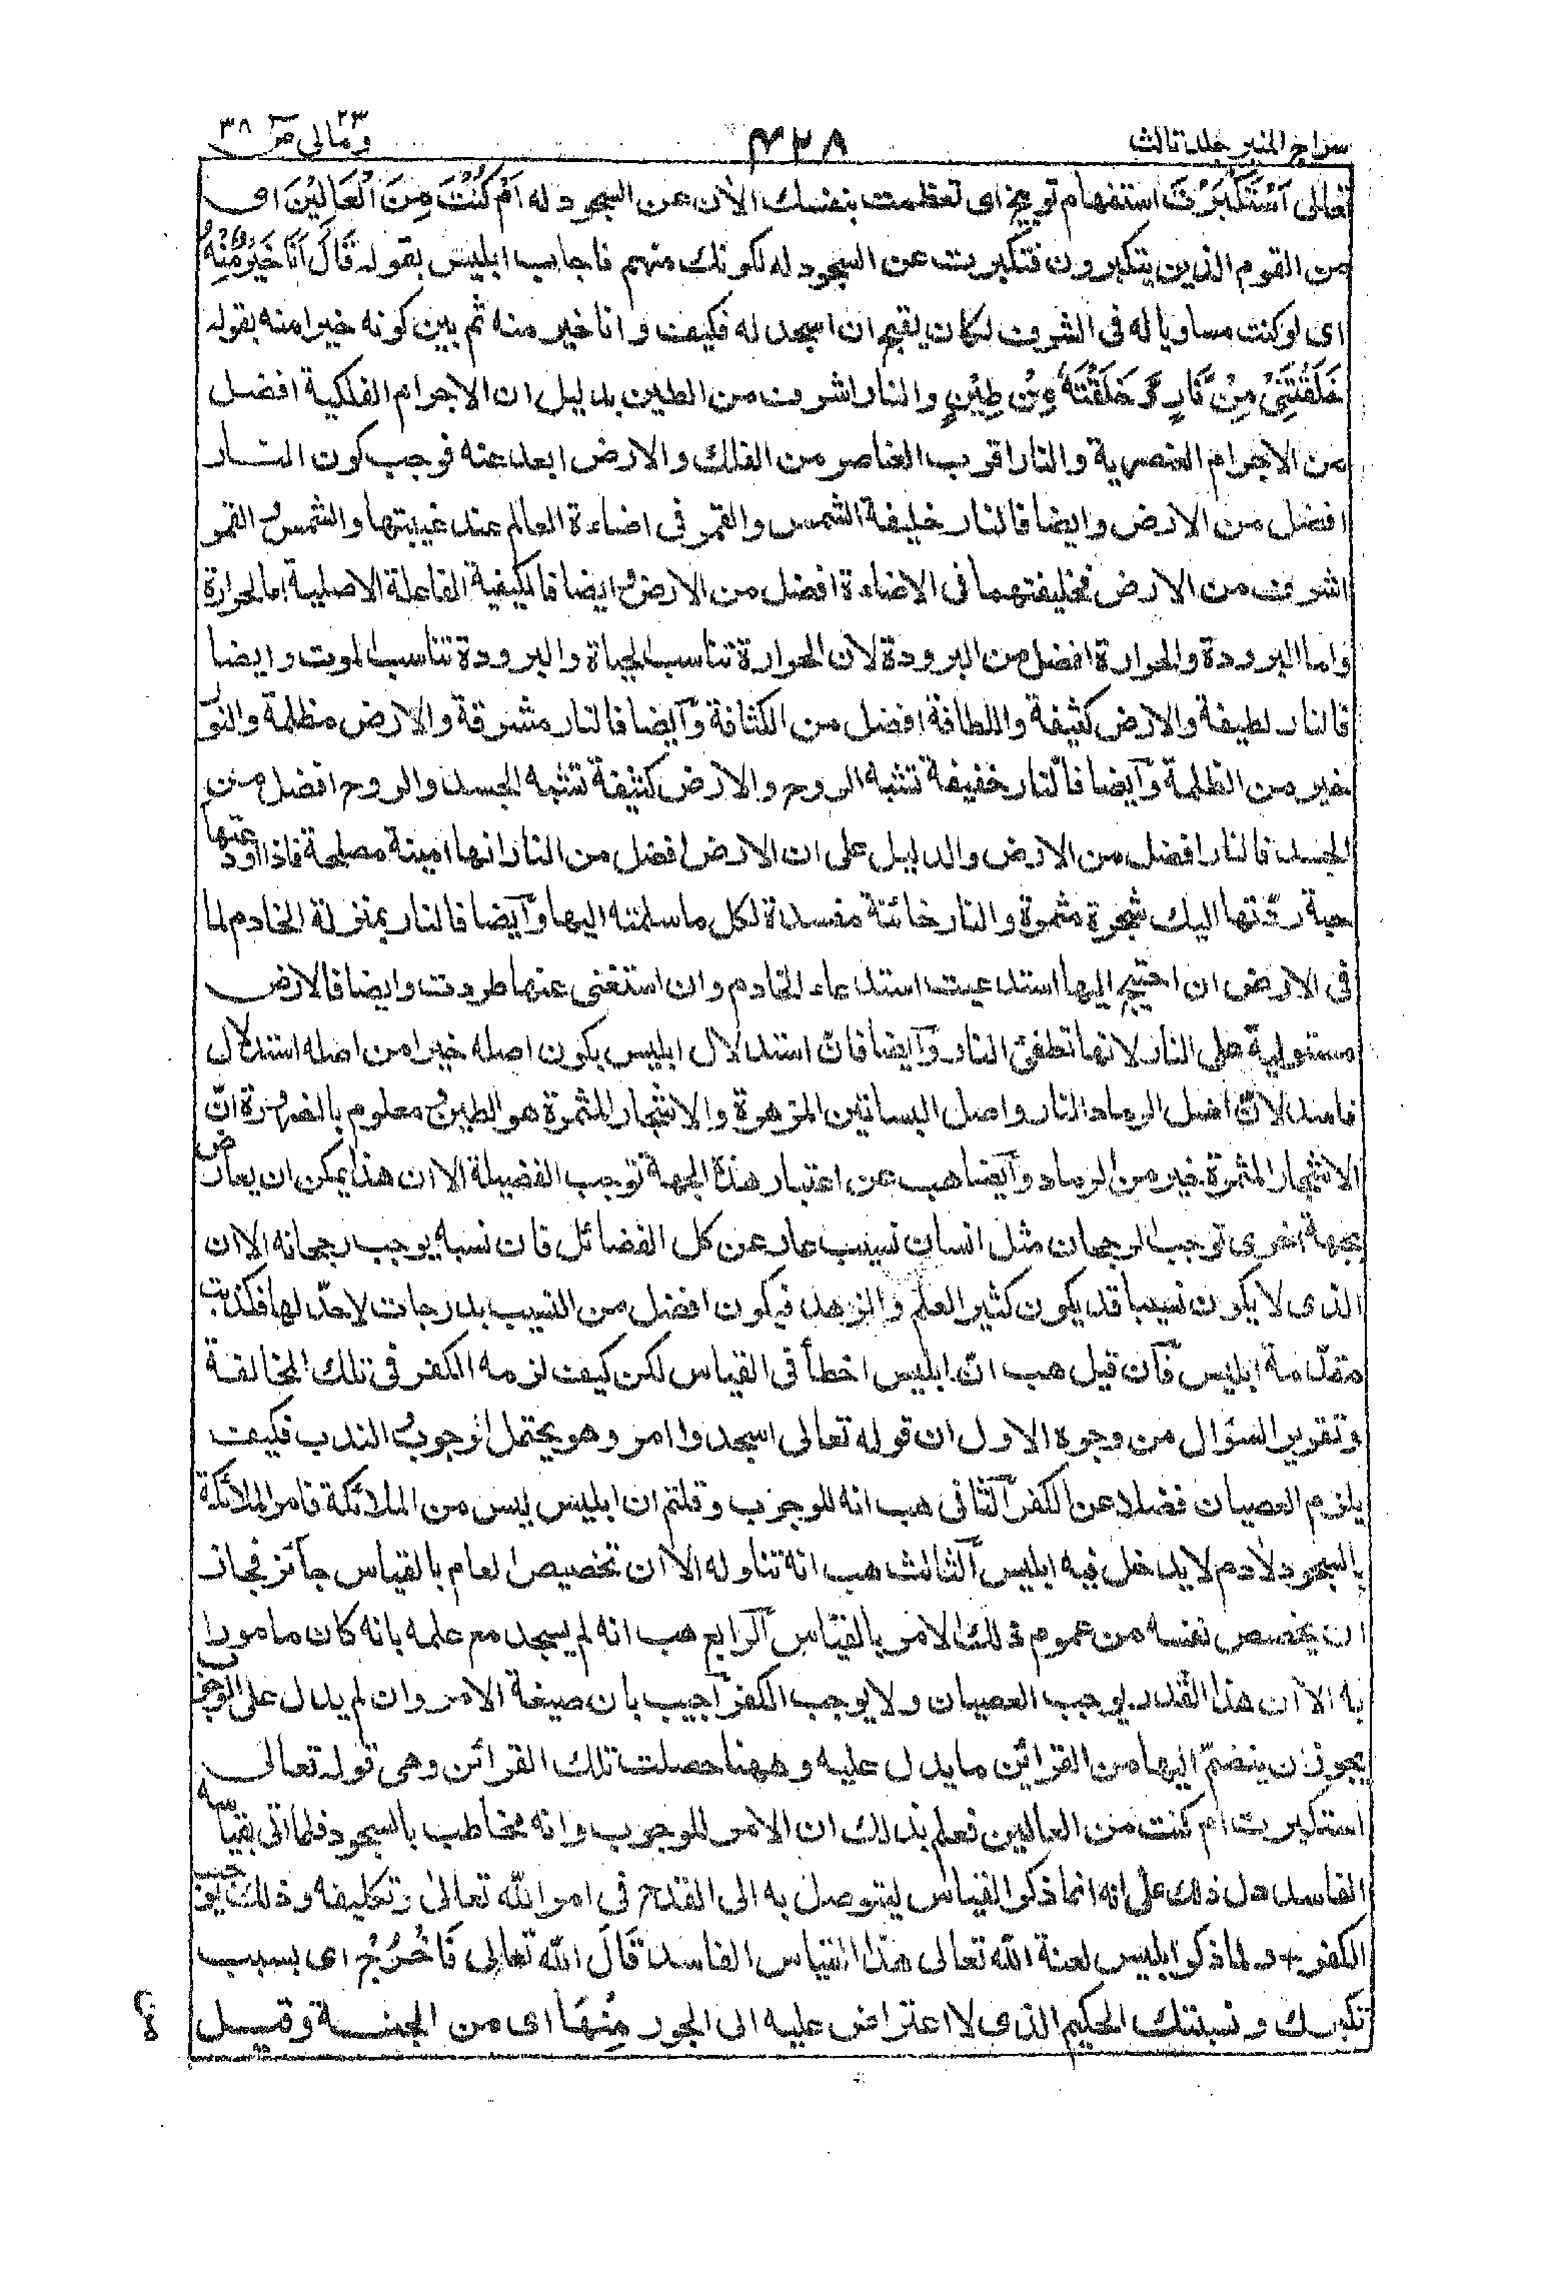 سراج المنير جلد ثالث
۴۲۸
ومالى ٢٣ ص ٣٨
تعالى اَسْتَكْبَرْتَ استفهام توبيخ اى تعظمت بنفسك الاٰن عن السجود له اَمْ كُنْتَ مِنَ الْعَالِيْنَ اى
من القوم الذين يتكبرون فتكبرت عن السجود له لكونك منهم فاجاب ابليس بقوله قَالَ اَنَا خَيْرٌ مِّنْهُ
اى لو كنت مساويا له فى الشرف لكان يقبح ان اسجد له فكيف وانا خير منه ثم بين كونه خيرا منه بقوله
خَلَقْتَنِىْ مِنْ نَّارٍ وَّخَلَقْتَهٗ مِنْ طِيْنٍ والنار اشرف من الطين بدليل ان الاجرام الفلكية افضل
من الاجرام العنصرية والنار اقرب العناصر من الفلك والارض ابعد عنه فوجب كون النار
افضل من الارض وايضا فالنار خليفة الشمس والقمر فى اضاءة العالم عند غيبتها والشمس والقمر
اشرف من الارض فخليفتهما فى الاضاءة افضل من الارض وايضا فالكيفية الفاعلة الاصلية اما الحرارة
واما البرودة والحرارة افضل من البرودة لان الحرارة تناسب الحياة والبرودة تناسب الموت وايضا
فالنار لطيفة والارض كثيفة واللطافة افضل من الكثافة وآيضا فالنار مشرقة والارض مظلمة والنور
خير من الظلمة وآيضا فالنار خفيفة تشبه الروح والارض كثيفة تشبه الجسد والروح افضل من
الجسد فالنار افضل من الارض والدليل على ان الارض افضل من النار انها امينة مصلحة فاذا اودعتها
حبة ردّتها اليك شجرة مثمرة والنار خائنة مفسدة لكل ما سلمته اليها وآيضا فالنار بمنزلة الخادم لما
فى الارض ان احتيج اليها استدعيت استدعاء الخادم وان استغنى عنها طردت وايضا فالارض
مستولية على النار لانها تطفئ النار وآيضا فان استدلال ابليس بكون اصله خيرا من اصله استدلال
فاسد لانّ اصل الرماد النار واصل البساتين المزهرة والاشجار المثمرة هو الطين ومعلوم بالضرورة انّ
الاشجار المثمرة خير من الرماد وآيضا هب عن اعتبار هذه الجهة توجب الفضيلة الا ان هذا يمكن ان يعارض
بجهة اخرى توجب الرجحان مثل انسان نسيب عار عن كل الفضائل فان نسبه يوجب رجحانه الا ان
الذى لا يكون نسيبا قد يكون كثير العلم والزهد فيكون افضل من النسيب بدرجات لا حدّ لها فكذبت
مقدّمة ابليس فآن قيل هب انّ ابليس اخطأ فى القياس لكن كيف لزمه الكفر فى تلك المخالفة
وتقرير السؤال من وجوه الاول ان قوله تعالى اسجدوا امر وهو يحتمل الوجوب والندب فكيف
يلزم العصيان فضلا عن الكفر آلثانى هب انه للوجوب وقلتم ان ابليس ليس من الملائكة فامر الملائكة
بالسجود لاٰدم لا يدخل فيه ابليس آلثالث هب انه تناوله الا ان تخصيص العام بالقياس جائز فجاز
ان يخصص نفسه من عموم ذلك الامر بالقياس آلرابع هب انه لم يسجد مع علمه بانه كان مامورا
به الا ان هذا القدر يوجب العصيان ولا يوجب الكفر آجيب بان صيغة الامر وان لم يدل على الوجوب
يجوز ان ينضمّ اليها من القرائن ما يدل عليه وههنا حصلت تلك القرائن وهى قوله تعالى
استكبرت ام كنت من العالين فعلم بذلك ان الامر للوجوب وانه مخاطب بالسجود فلما اتى بقياسه
الفاسد دل ذلك على انه انما ذكر القياس ليتوصل به الى القدح فى امر الله تعالى وتكليفه وذلك يوجب
الكفر + و لما ذكر ابليس لعنة الله تعالى هذا القياس الفاسد قَالَ الله تعالى فَاخْرُجْ اى بسبب
تكبرك ونسبتك الحكيم الذى لا اعتراض عليه الى الجور مِنْهَا اى من الجنة وقيل